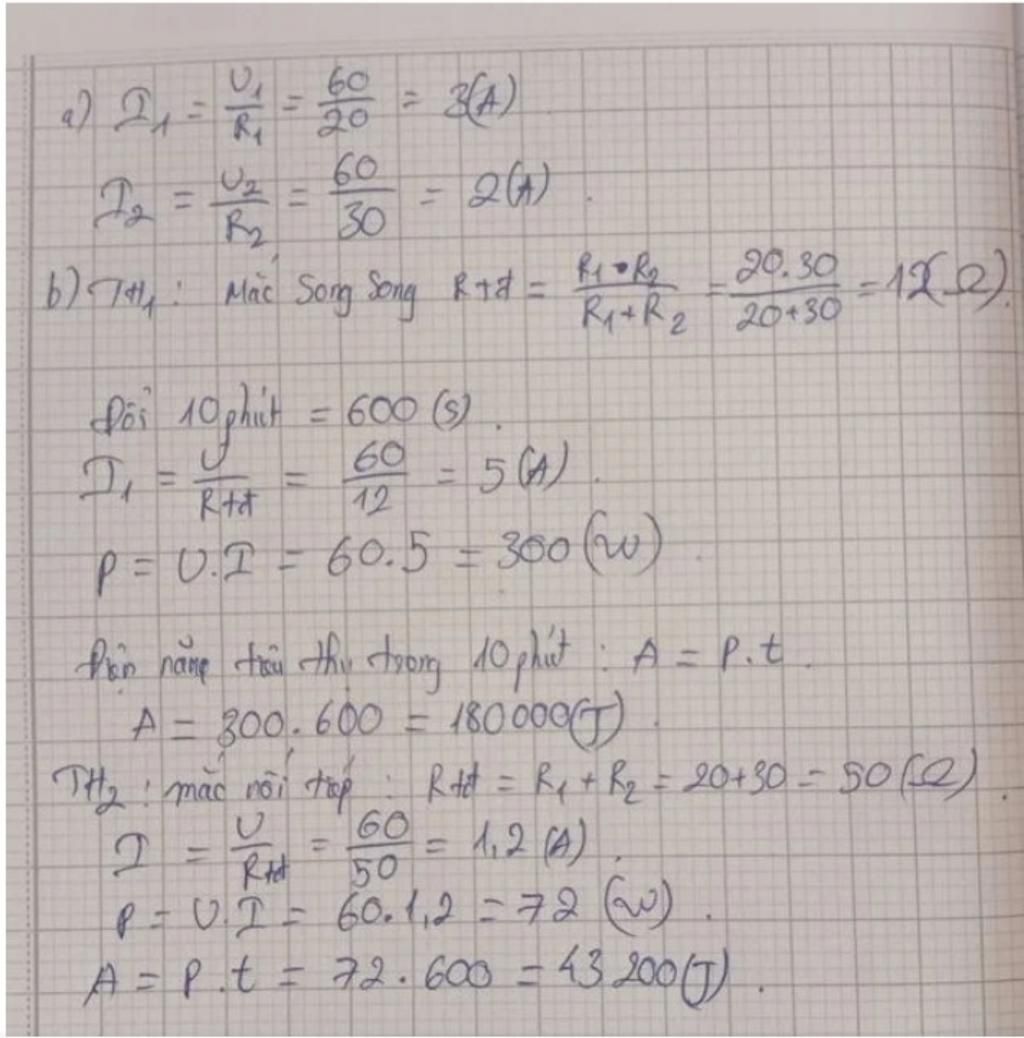 a) I₁ = U₁/R₁ = 60/20 = 3(A)
I₂ = U₂/R₂ = 60/30 = 2(A).
b) TH₁: Mắc Song Song Rtđ = R₁.R₂/R₁+R₂ = 20.30/20+30 = 12(Ω).
Đổi 10 phút = 600 (s).
I₁ = U/Rtđ = 60/12 = 5 (A).
P = U.I = 60.5 = 300 (W).
Điện năng tiêu thụ trong 10 phút : A = P.t.
A = 300.600 = 180000(J).
TH₂ : mắc nối tiếp : Rtđ = R₁ + R₂ = 20+30 = 50 (Ω).
I = U/Rtđ = 60/50 = 1,2 (A).
P = U.I = 60.1,2 = 72 (W).
A = P.t = 72.600 = 43 200(J).